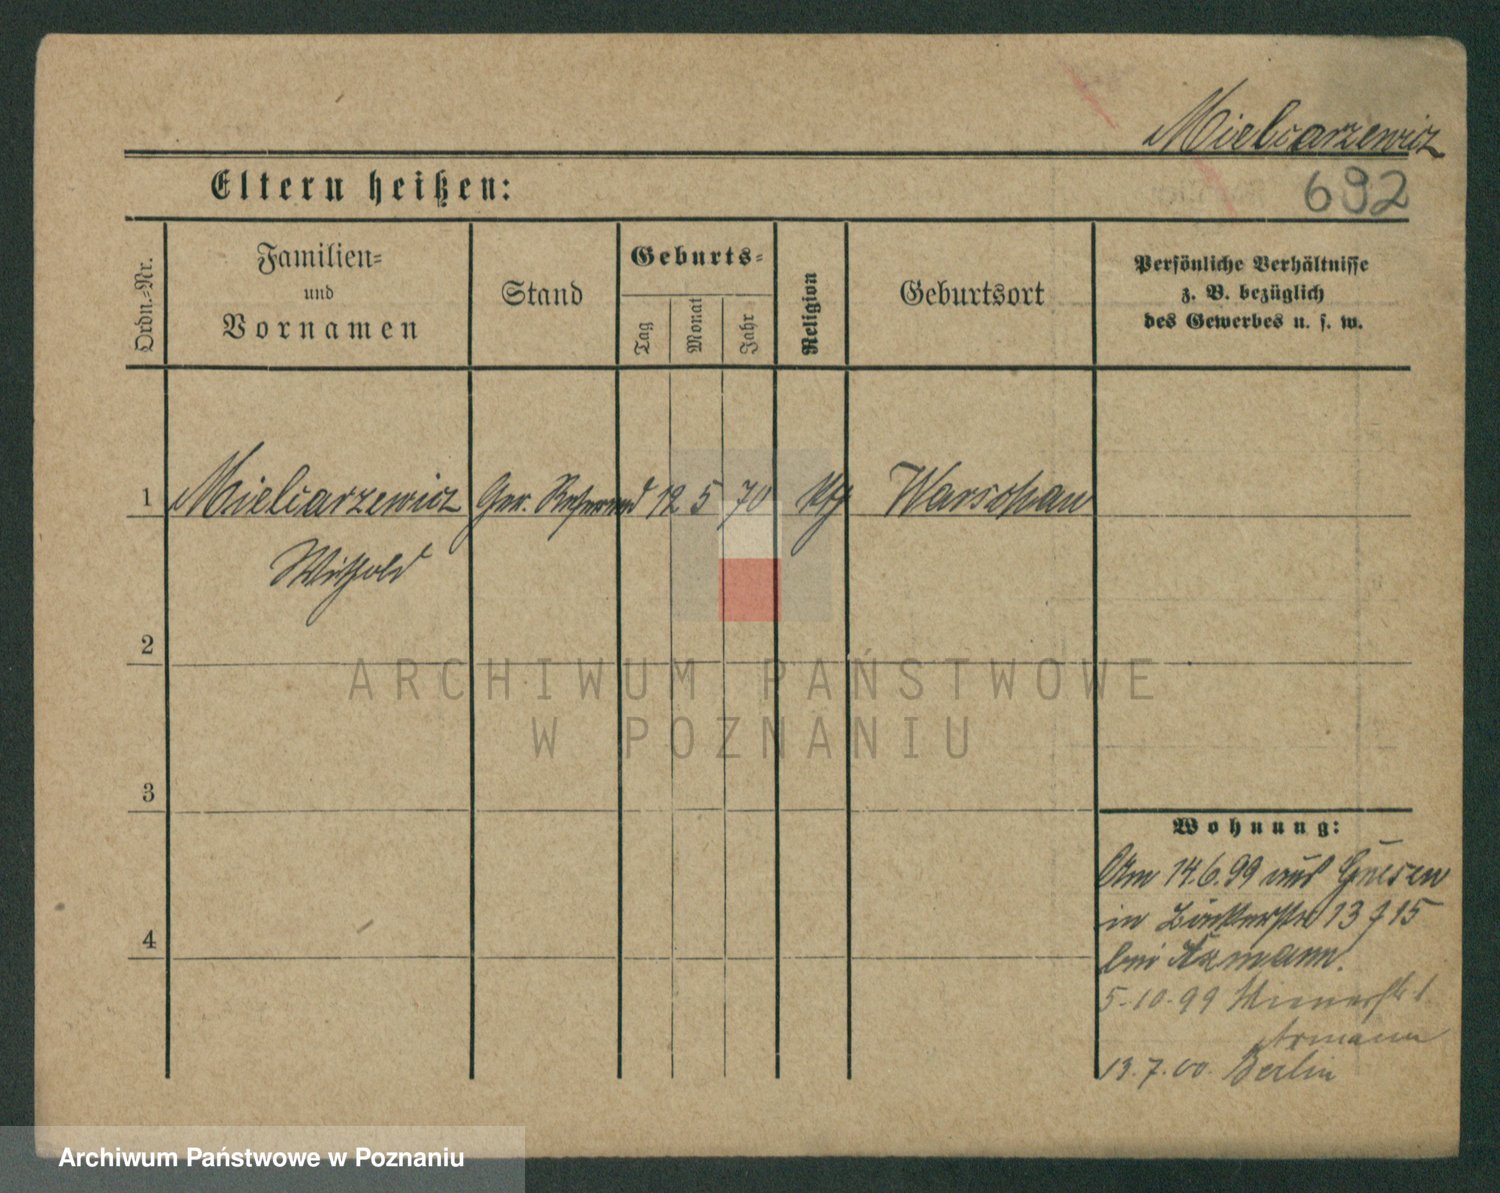 Mielcarzewicz
692
Eltern heißen:
Ordn.-Nr.
Familien-
und
Vornamen
Stand
Geburts-
Tag
Monat
Jahr
Religion
Geburtsort
Persönliche Verhältnisse
z. B. bezüglich
des Gewerbes u. s. w.
1 Mielcarzewicz Ger. Referend 12 5 70 Warschau
Withold
2
3
4
Wohnung:
Am 14.6.99 aus Gnesen
in 13 15
bei Axmann.
5-10-99
Axmann
13.7.00. Berlin
ARCHIWUM PAŃSTWOWE
W POZNANIU
Archiwum Państwowe w Poznaniu